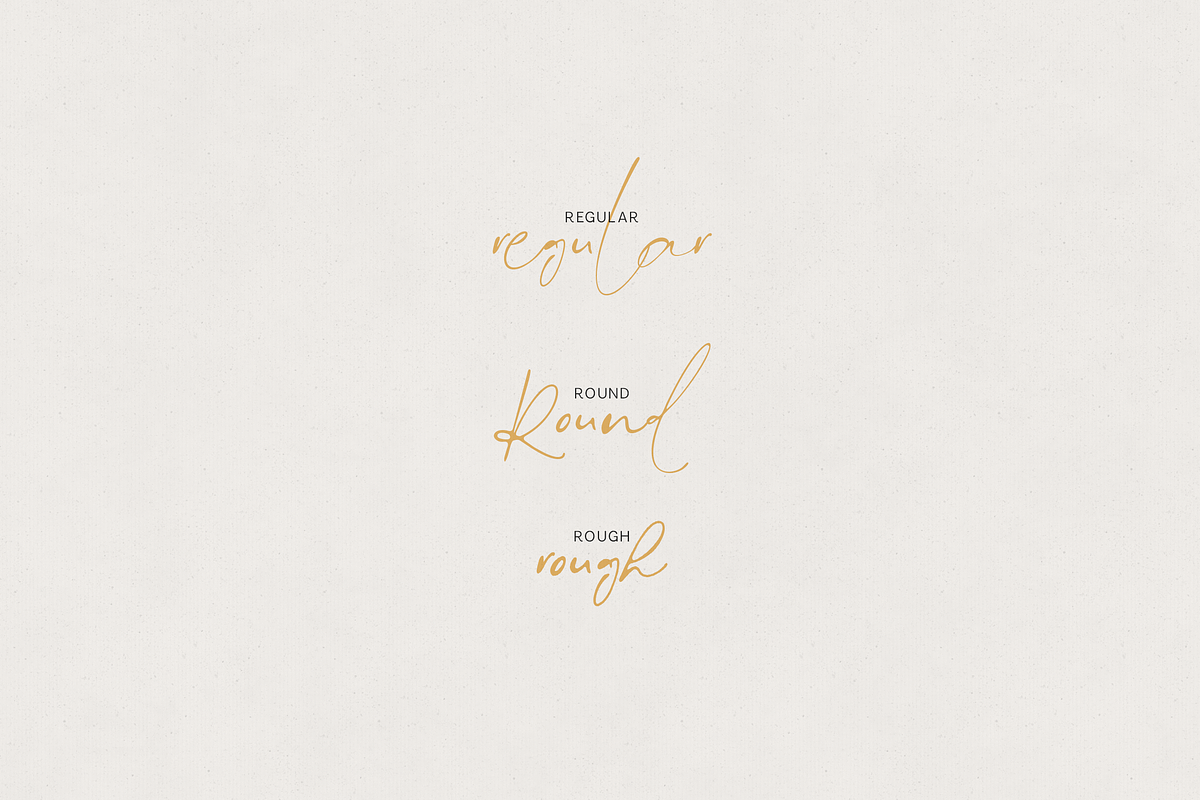 REGULAR
regular
ROUND
Round
ROUGH
rough